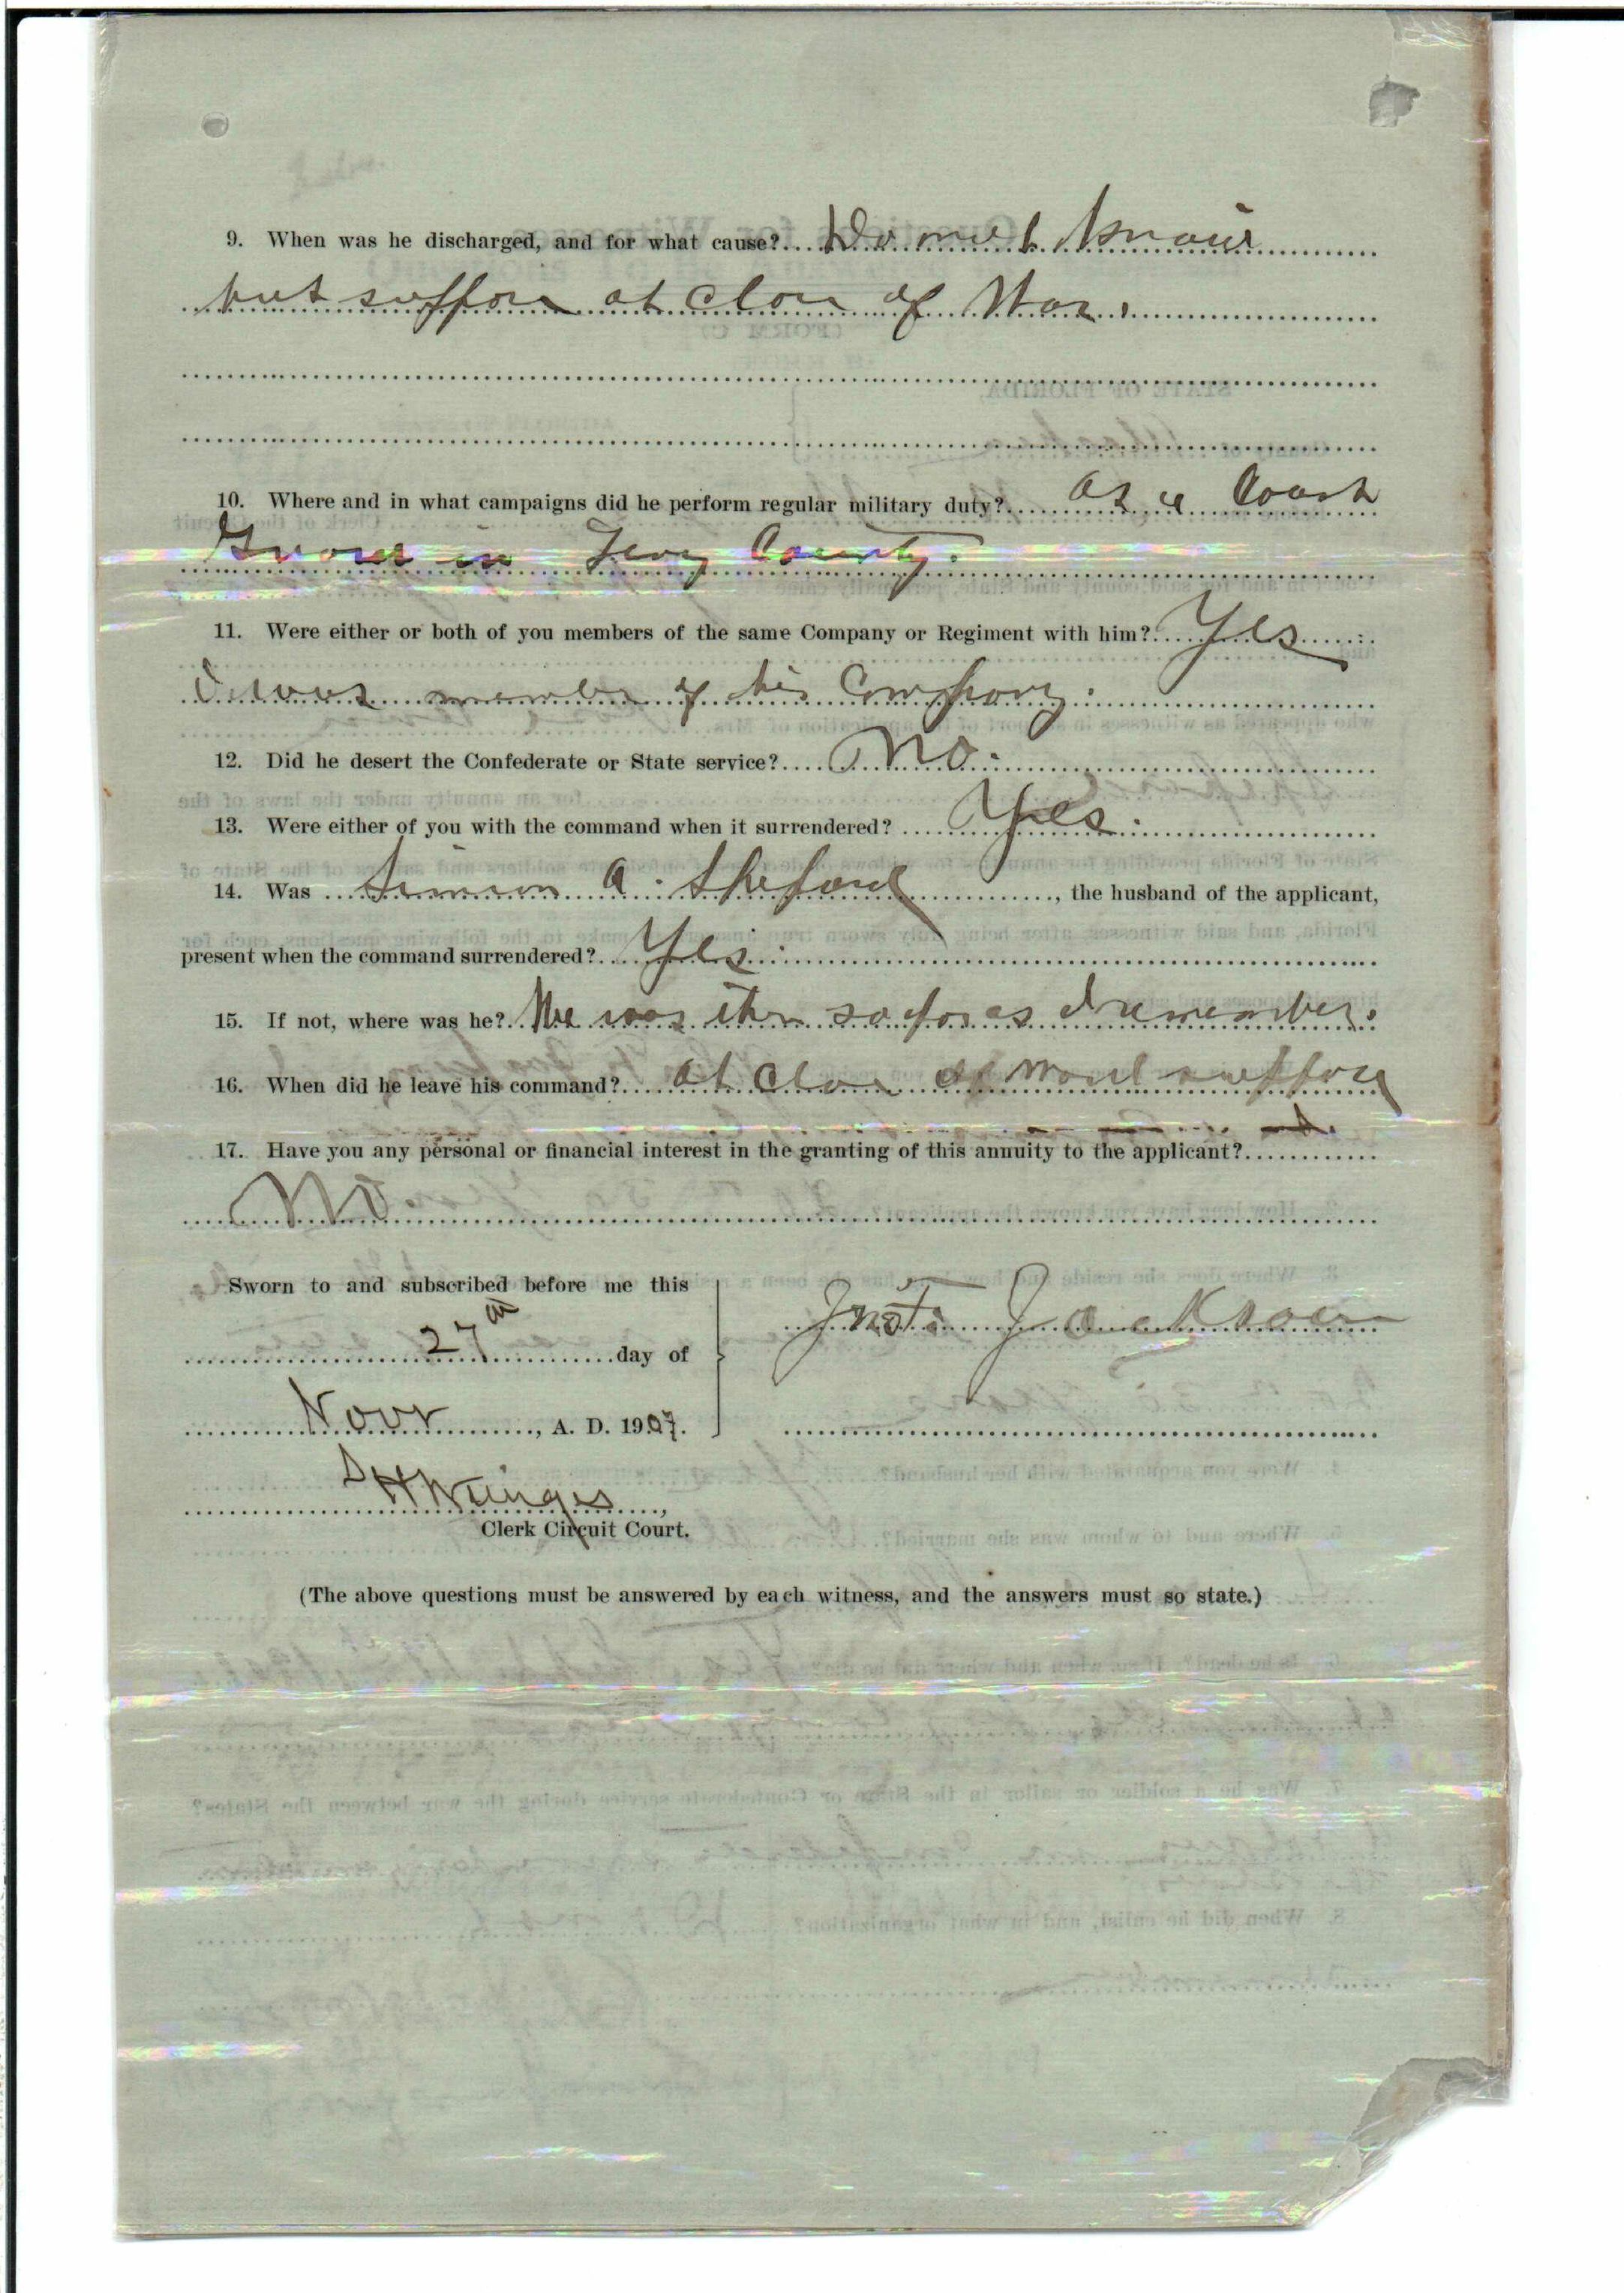 9. When was he discharged, and for what cause? Do not know
but suppose at close of War.
10. Where and in what campaigns did he perform regular military duty? as a Coast
Guard in Levy County.
11. Were either or both of you members of the same Company or Regiment with him? Yes
I was member of his Company.
12. Did he desert the Confederate or State service? No.
13. Were either of you with the command when it surrendered? Yes.
14. Was Simeon A. Sheford, the husband of the applicant,
present when the command surrendered? Yes.
15. If not, where was he? He was then so far as I remember.
16. When did he leave his command? at close of suppose
17. Have you any personal or financial interest in the granting of this annuity to the applicant?
No.
Sworn to and subscribed before me this
27th day of
Novr, A. D. 1907.
Jno T. Jackson
S H Wienges
Clerk Circuit Court.
(The above questions must be answered by each witness, and the answers must so state.)